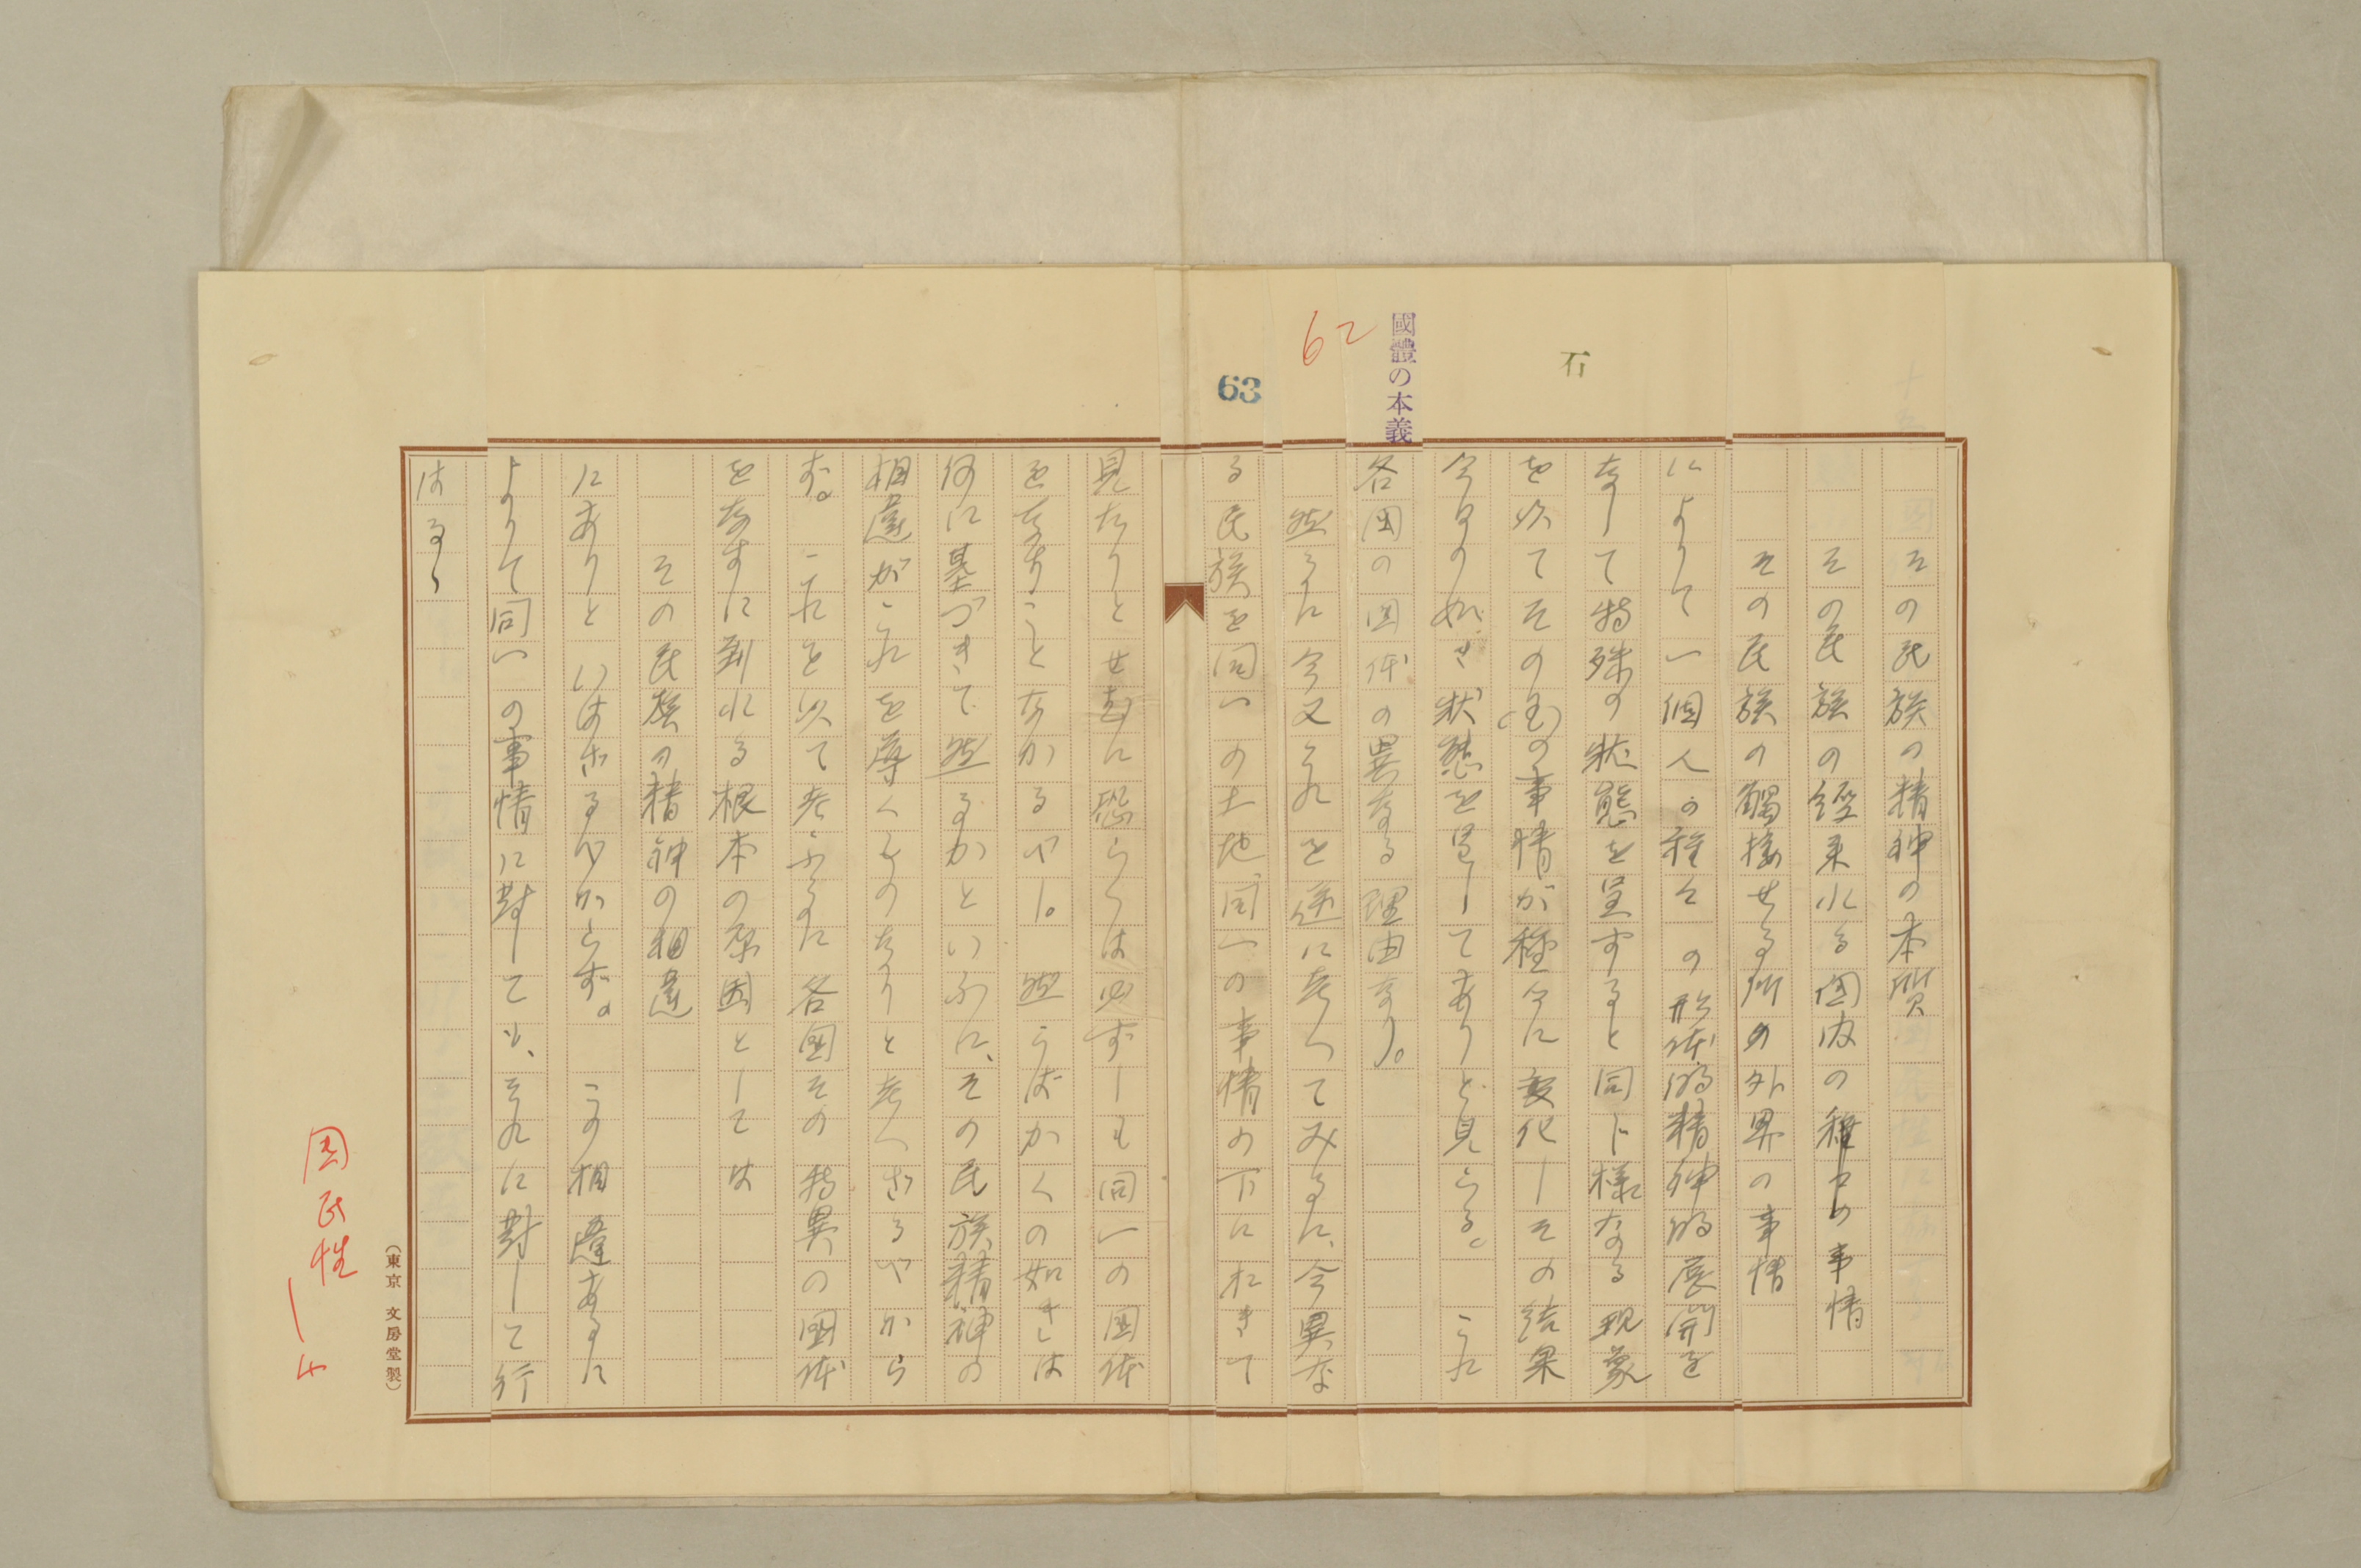 62
國體の本義
石
63
その民族の精神の本質
その民族の經來れる國内の種々の事情
その民族の觸接せる所の外界の事情
によりて一個人の種々の形体的精神的展開を
なして特殊の状態を呈すると同じ様なる現象
を以てその の事情が種々に変化しその結果
今日の如き状態を呈してありと見らる。これ
各国の国体の異なる理由なり。
然るに今又これを逆に考へてみるに、今異な
る民族を同一の土地、同一の事情の下におきて
見たりとせむに恐らくは必ずしも同一の国体
をなすことなかるべし。然らばかくの如きは
何に基づきて然るかといふに、その民族精神の
相違がこれを導くものなりと考へざるべから
ず。これを以て考ふるに各国その特異の国体
をなすに到れる根本の原因としては
その民族の精神の相違
にありといはざるべからず。この相違あるに
よりて同一の事情に對しても、それに對して行
はるゝ
国民性 一4
(東京 文房堂製)